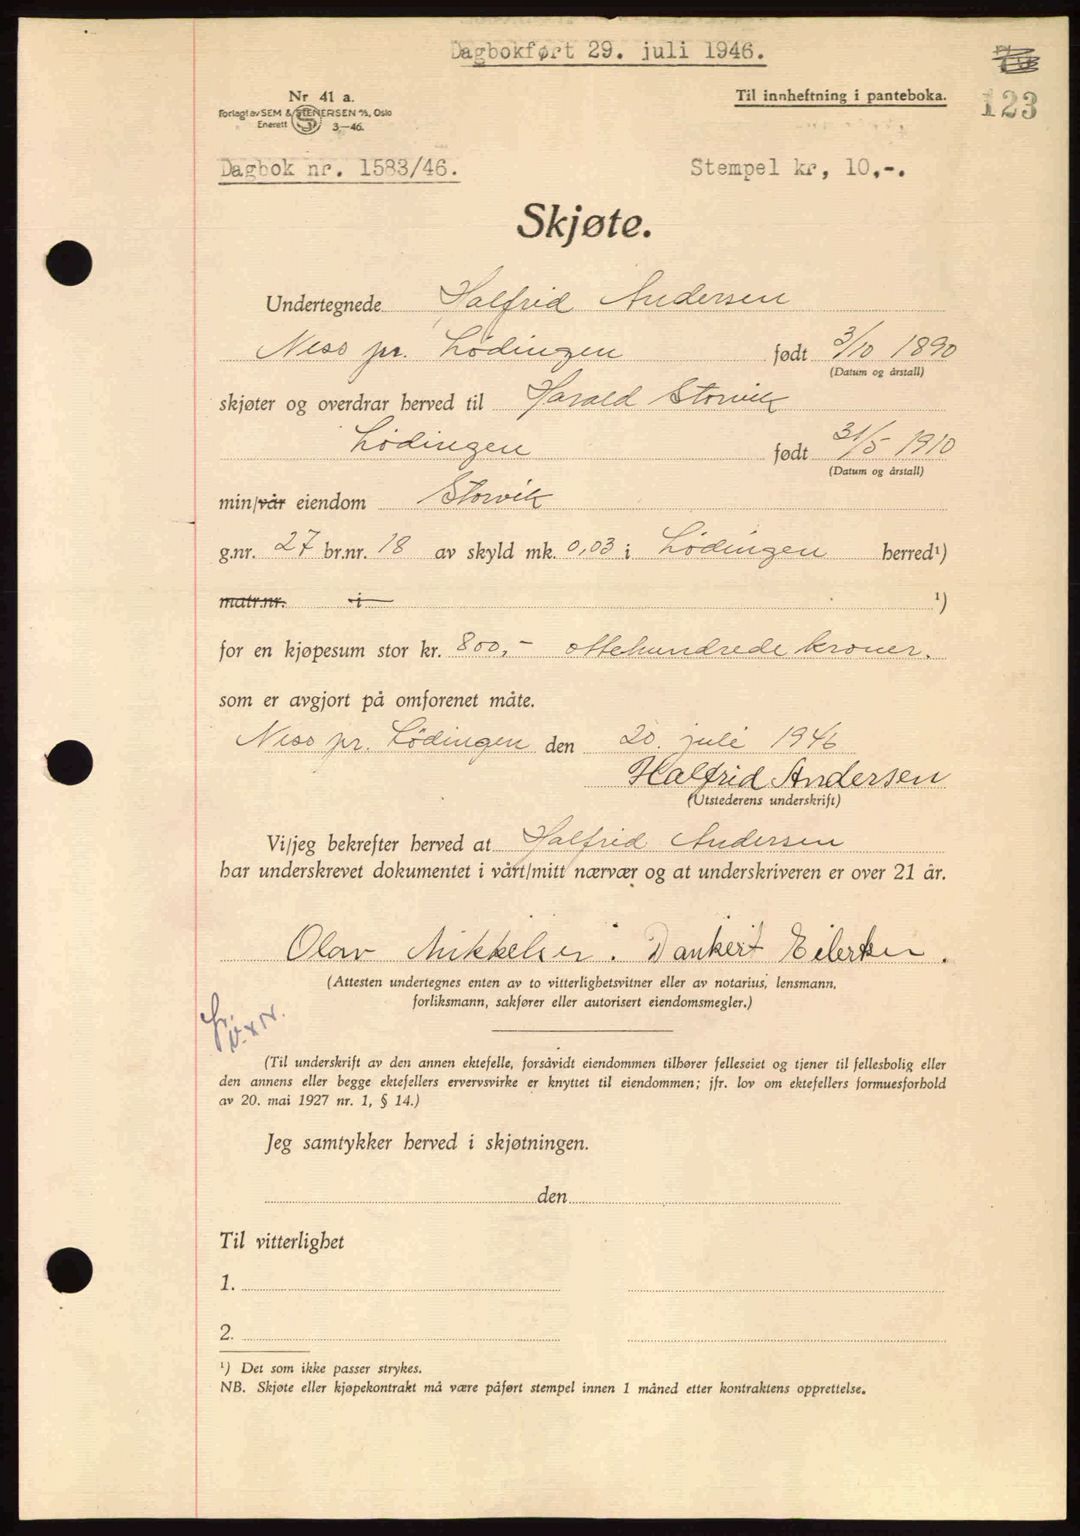 Dagbokført 29. juli 1946.
Nr 41 a.
Forlagt av SEM & STENERSEN A/S, Oslo
Enerett S 3-46.
Til innheftning i panteboka.
123
Dagbok nr. 1583/46.
Stempel kr, 10,-.
Skjøte.
Undertegnede Halfrid Andersen
Ness pr. Lødingen født 3/10 1890
(Datum og årstall)
skjøter og overdrar herved til Harald Storvik
Lødingen født 31/5 1910
(Datum og årstall)
min/vår eiendom Storvik
g.nr. 27 br.nr. 18 av skyld mk. 0,03 i Lødingen herred¹)
matr.nr. i ¹)
for en kjøpesum stor kr. 800,- ottehundrede kroner.
som er avgjort på omforenet måte.
Ness pr. Lødingen den 20. juli 1946
Halfrid Andersen
(Utstederens underskrift)
Vi/jeg bekrefter herved at Halfrid Andersen
har underskrevet dokumentet i vårt/mitt nærvær og at underskriveren er over 21 år.
Olav Mikkelsen. Dankert Eilertsen.
(Attesten undertegnes enten av to vitterlighetsvitner eller av notarius, lensmann,
forliksmann, sakfører eller autorisert eiendomsmegler.)
(Til underskrift av den annen ektefelle, forsåvidt eiendommen tilhører felleseiet og tjener til fellesbolig eller
den annens eller begge ektefellers ervervsvirke er knyttet til eiendommen; jfr. lov om ektefellers formuesforhold
av 20. mai 1927 nr. 1, § 14.)
Jeg samtykker herved i skjøtningen.
den
Til vitterlighet
1.
2.
¹) Det som ikke passer strykes.
NB. Skjøte eller kjøpekontrakt må være påført stempel innen 1 måned etter kontraktens opprettelse.